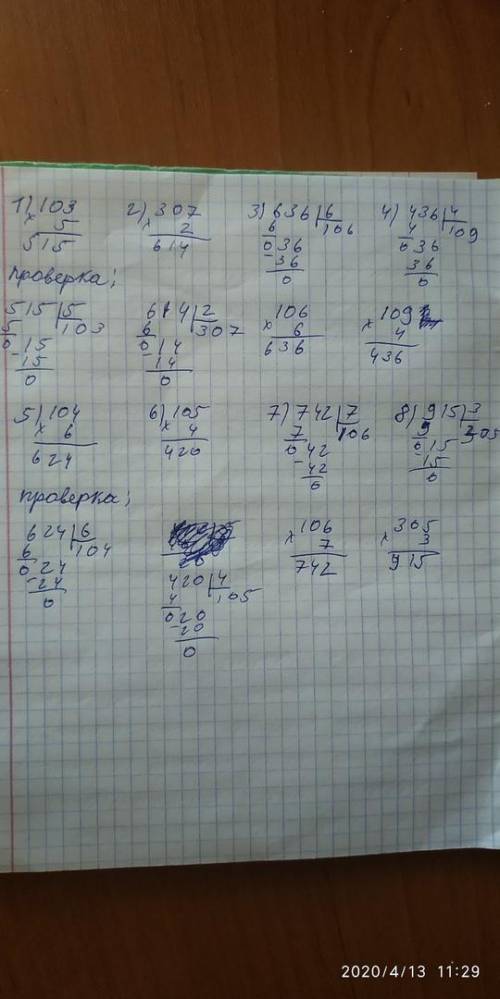 1) 103 2) 307 3) 636 | 6 4) 436 | 4
x 5 x 2 6 106 4 109
515 614 036 036
-36 36
0 0
проверка;
515 | 5 614 | 2 106 109
5 103 6 307 x 6 x 4
0 15 0 14 636 436
-15 -14
0 0
5) 104 6) 105 7) 742 | 7 8) 915 | 3
x 6 x 4 7 106 9 305
624 420 042 015
-42 -15
0 0
проверка;
624 | 6 106 305
6 104 x 7 x 3
024 742 915
-24
0
420 | 4
4 105
020
-20
0
2020/4/13 11:29